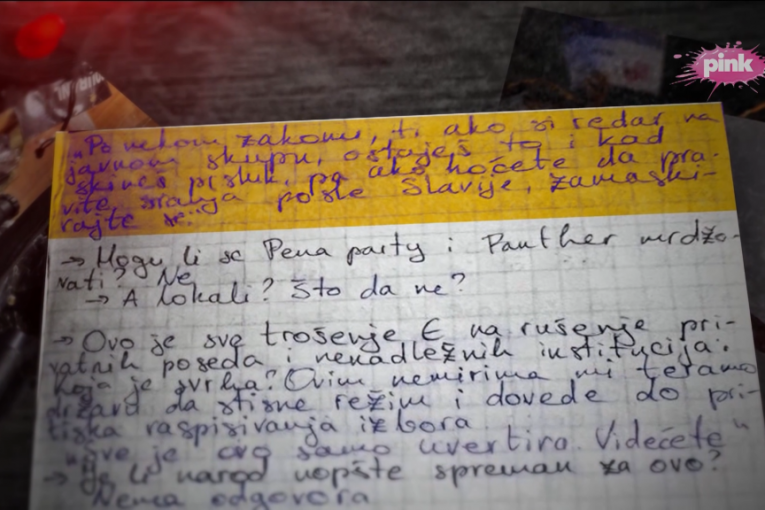 pink
"Po nekom zakonu, ti ako si redar na
javnom skupu, ostaješ to i kad
skineš prsluk, pa ako hoćete da pra-
vite sranja posle Slavije, zamaski-
rajte se."
→ Mogu li se Pena party i Panther mrdžo-
vati? Ne
→ A lokali? Što da ne?
→ Ovo je sve trošenje € na rušenje pri-
vatnih poseda i nenadležnih institucija.
Koja je svrha? Ovim nemirima mi teramo
državu da stisne režim i dovede do pri-
tiska raspisivanja izbora
"Sve je ovo samo uvertira. Videćete"
→ Je li narod uopšte spreman za ovo?
Nema odgovora